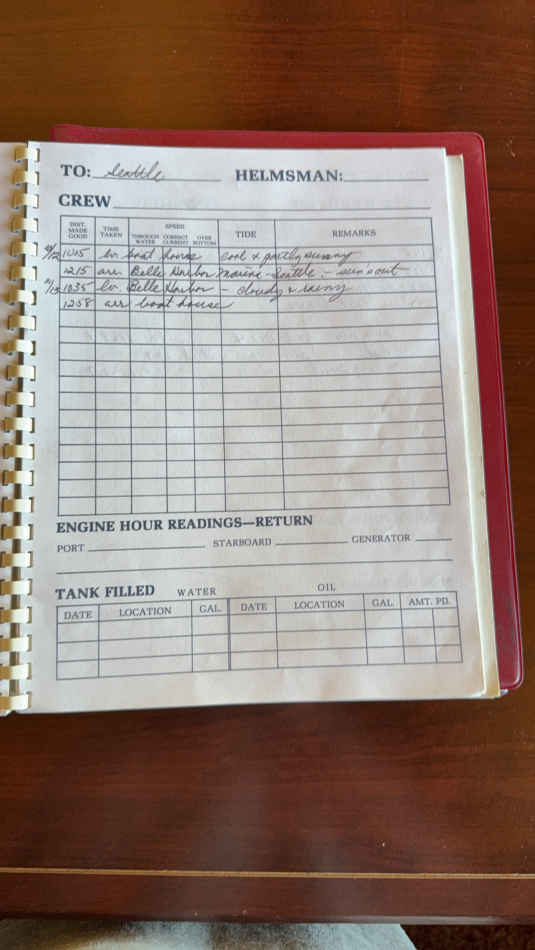 TO: Seattle HELMSMAN:
CREW
DIST. MADE GOOD TIME TAKEN SPEED THROUGH WATER CORRECT CURRENT OVER BOTTOM TIDE REMARKS
1015 lv. boat house cool & partly sunny
1215 arr. Belle Harbor Marina - Seattle - sun's out
1035 lv. Belle Harbor - cloudy & rainy
1258 arr boat house
ENGINE HOUR READINGS—RETURN
PORT STARBOARD GENERATOR
TANK FILLED WATER OIL
DATE LOCATION GAL. DATE LOCATION GAL. AMT. PD.